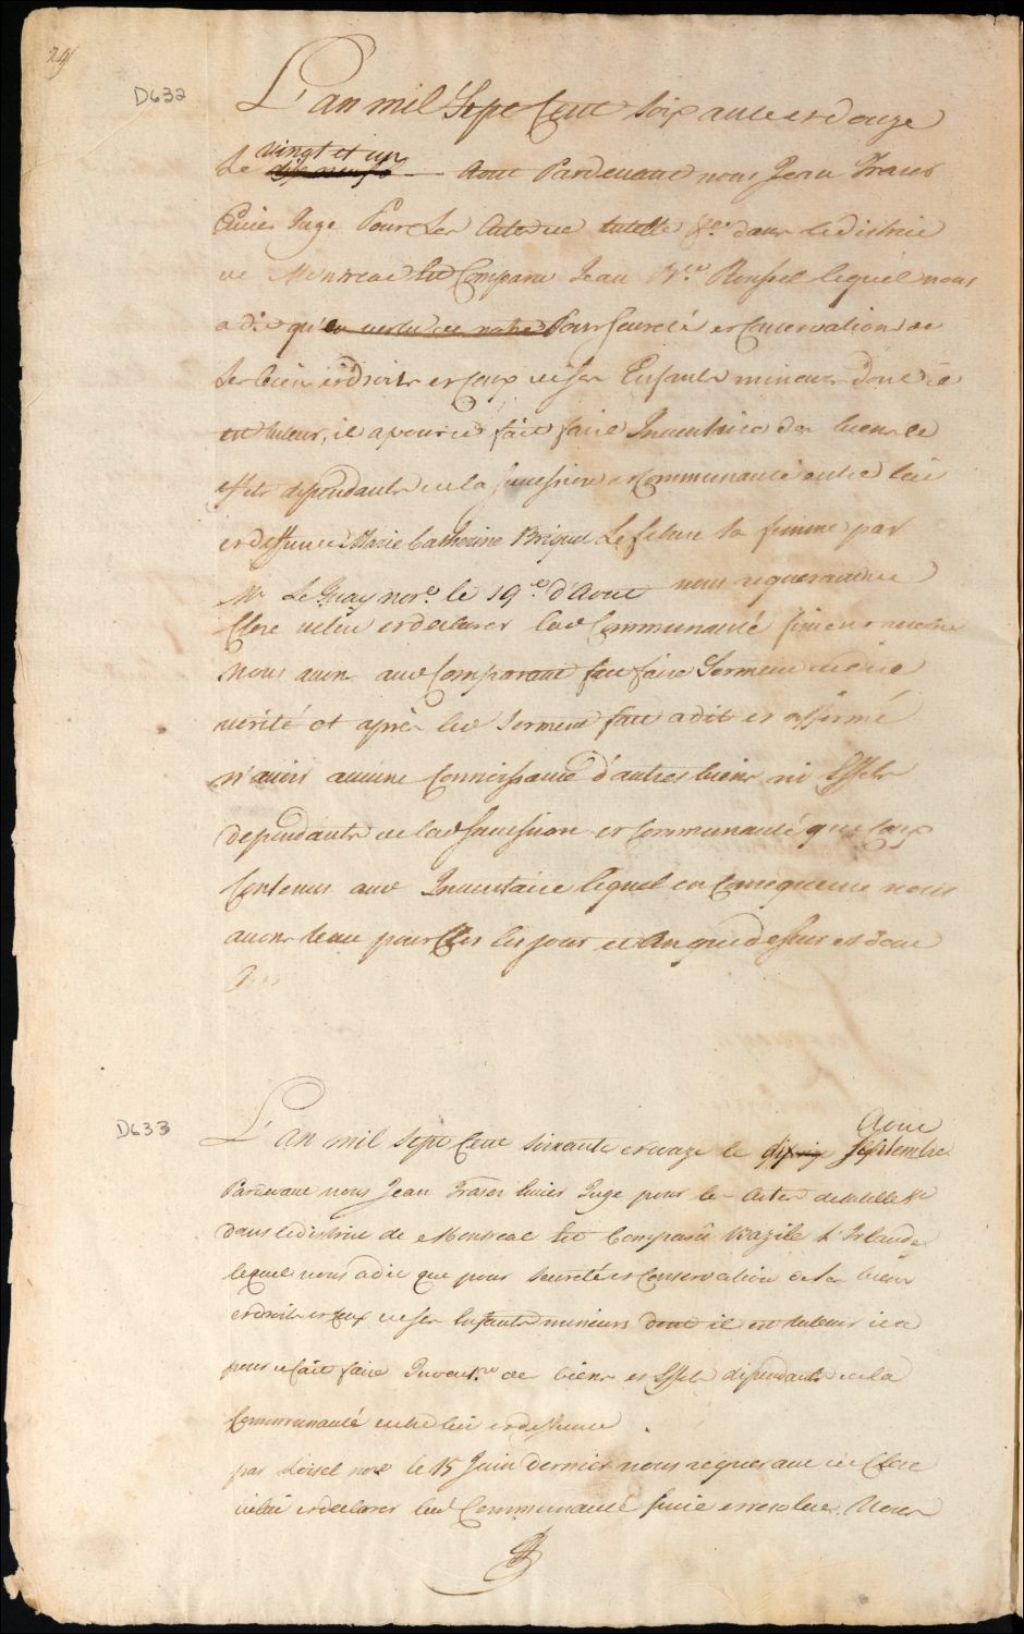 29
D632
L'an mil Sept Cent Soixante et douze
Le vingt et un Aout Pardevant nous Jean Fraser
Ecuier Juge Pour Les Actes de tutelle &c.a dans le district
de Montreal est Comparu Jean B.te Roussel lequel nous
a dit qu'en vertu de notre Pour seureté et Conservation de
ses biens et droits et ceux de ses Enfants mineurs dont il
est tuteur, il a pour ce fait faire Inventaire des biens et
effets dependants de la succession et Communauté entre lui
et deffunte Marie Catherine Lefebvre sa femme par
M.r Le Guay not.e le 19.e d'Aout nous requerant de
Clore icelui et declarer lad Communauté finie
Nous avons aud Comparant fait faire Serment de dire
verité et après led Serment fait a dit et affirmé
n'avoir aucune Connoissance d'autres biens ni Effets
dependants de lad succession et Communauté que ceux
Contenus aud Inventaire lequel en Consequence nous
avons tenu pour Clos les jour et An que dessus et donné
D633
L'an mil Sept Cent Soixante et douze le Aout Septembre
Pardevant nous Jean Fraser Ecuier Juge pour les Actes de tutelle &c
Dans le district de Montreal est Comparû Bazile L'Irlande
lequel nous a dit que pour seureté et Conservation de ses biens
et droits et ceux de ses Enfants mineurs dont il est tuteur il a
pour ce fait faire Invent.re des biens et Effets dependants de la
Communauté entre lui et deffunte .
par Loisel not le 15 Juin dernier nous requerant de Clore
icelui et declarer lad Communauté finie et resolue. Nous